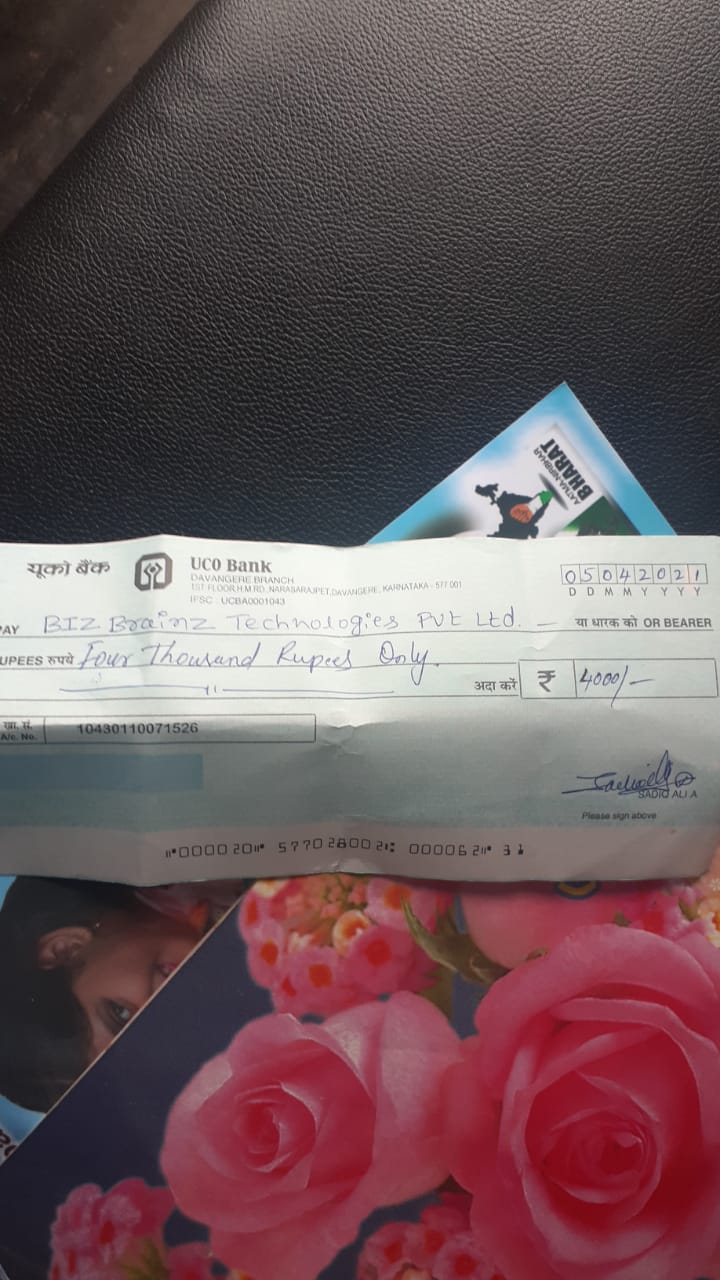 AATMA NIRBHAR
BHARAT
यूको बैंक
UCO Bank
DAVANGERE BRANCH
1ST FLOOR,H.M.RD.,NARASARAJPET,DAVANGERE, KARNATAKA - 577 001
IFSC : UCBA0001043
05042021
D D M M Y Y Y Y
PAY BIZ Brainz Technologies Pvt Ltd. — या धारक को OR BEARER
UPEES रुपये Four Thousand Rupees Only.
अदा करें ₹ 4000/-
खा. सं.
A/c. No. 10430110071526
SADIQ ALI A
Please sign above
⑈000020⑈ 577028002⑆ 000062⑈ 31